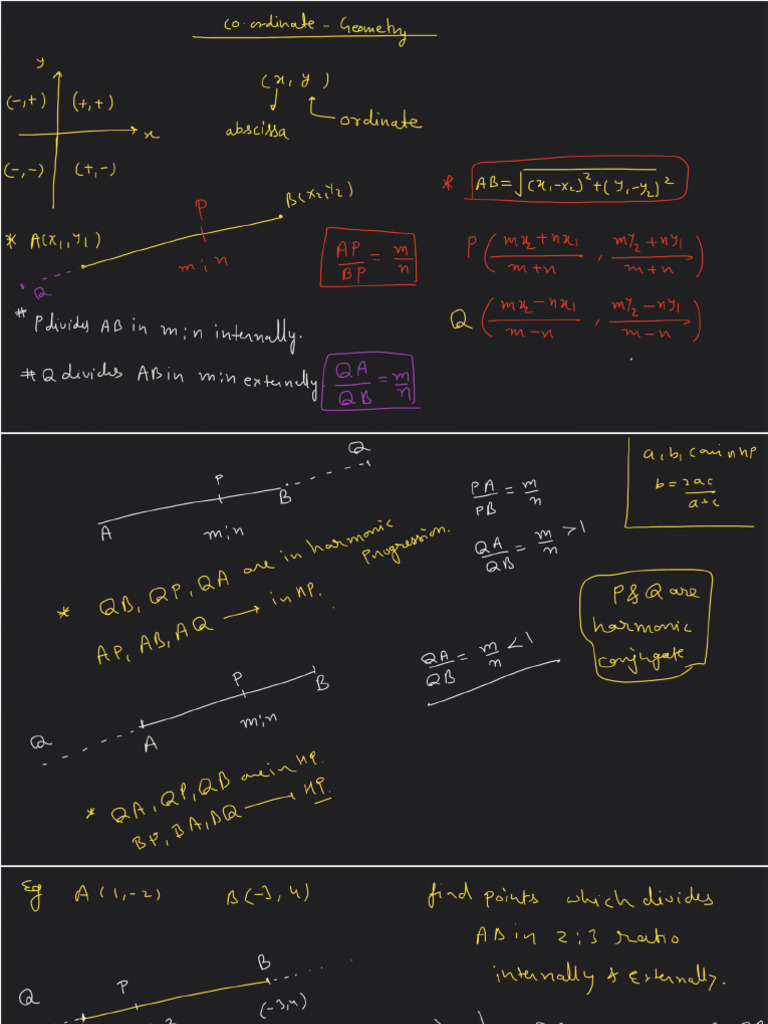 co-ordinate - Geometry
y
(-,+) (+,+)
x
(-,-) (+,-)
(x, y)
abscissa
ordinate
* AB = √(x₁-x₂)²+(y₁-y₂)²
* A(x₁,y₁)
P
B(x₂,y₂)
m:n
Q
AP/BP = m/n
P( (mx₂+nx₁)/(m+n) , (my₂+ny₁)/(m+n) )
Q( (mx₂-nx₁)/(m-n) , (my₂-ny₁)/(m-n) )
# P divides AB in m:n internally.
# Q divides AB in m:n externally.
QA/QB = m/n
A
P
B
Q
m:n
PA/PB = m/n
QA/QB = m/n >1
a, b, c are in HP
b = 2ac/(a+c)
* QB, QP, QA are in harmonic progression.
AP, AB, AQ → in HP.
P & Q are
harmonic
conjugate
QA/QB = m/n <1
Q
A
P
B
m:n
* QA, QP, QB are in HP.
BP, BA, BQ → HP.
Eg A(1,-2) B(-3,4)
find points which divides
AB in 2:3 ratio
internally & externally.
Q
P
B
(-3,4)
2